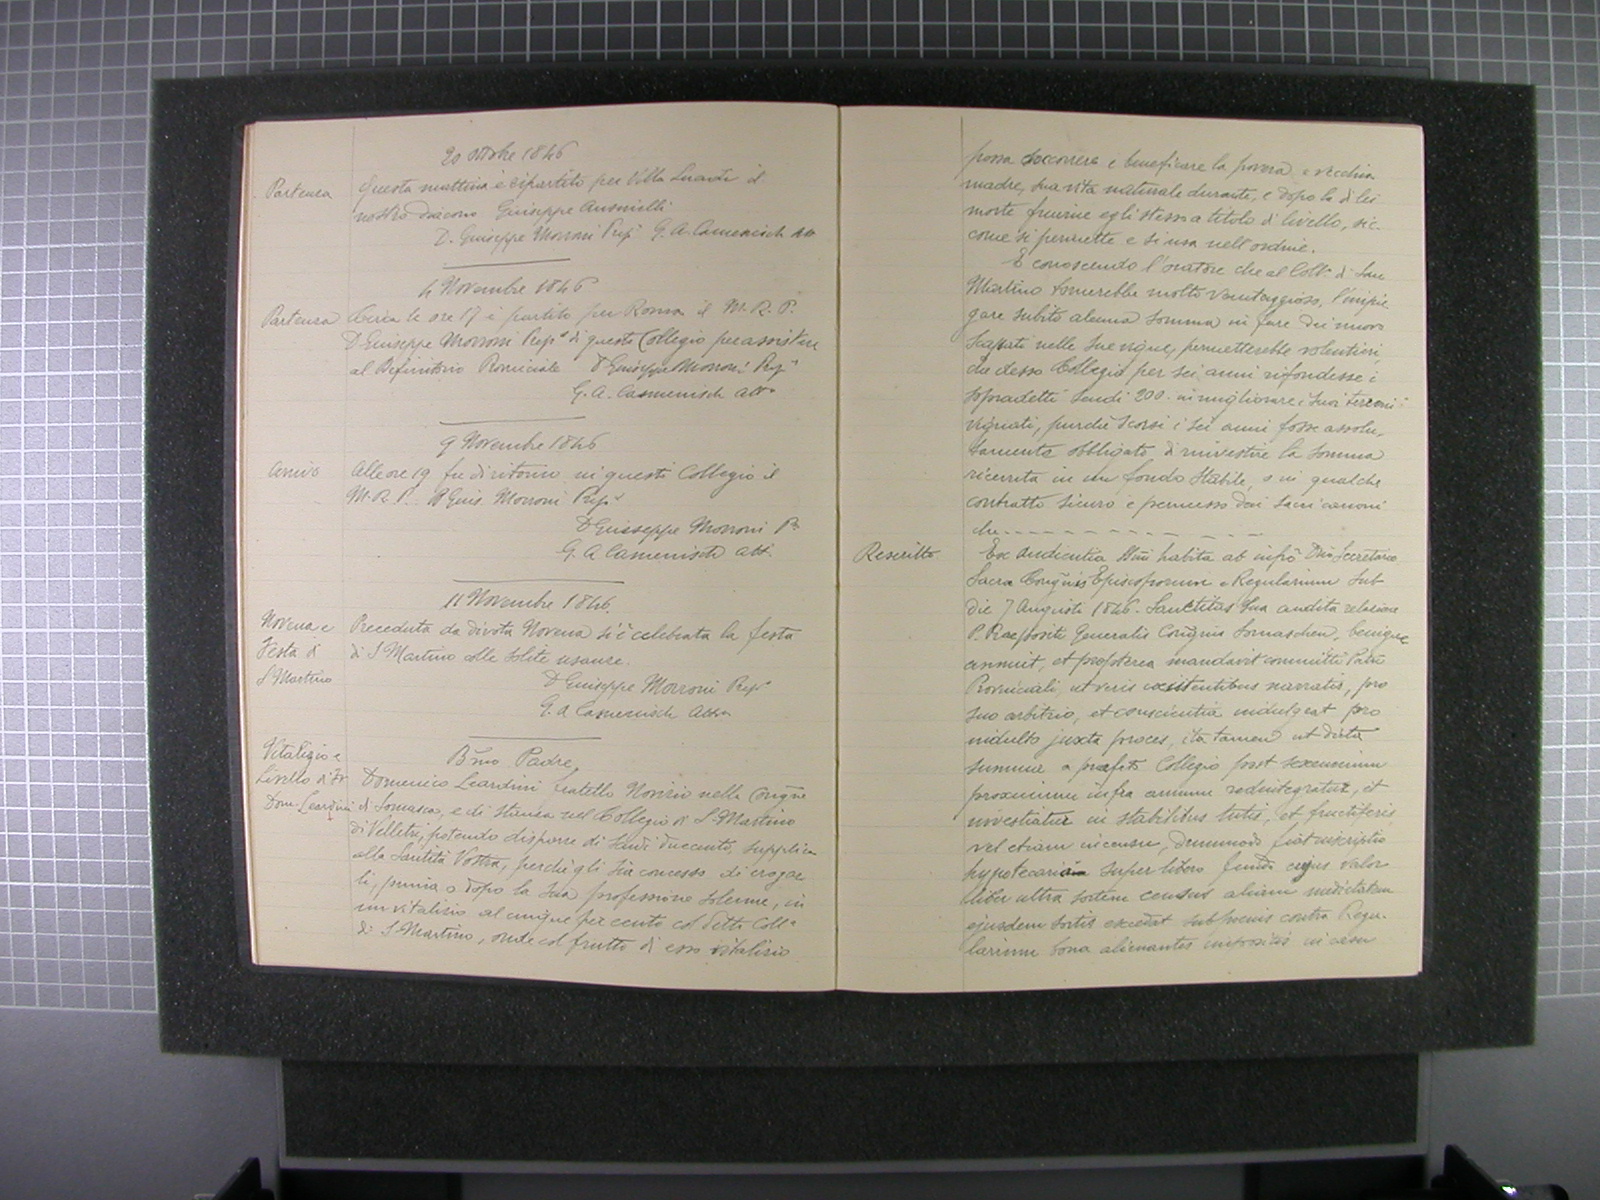 20 ottobre 1846
Partenza
Questa mattina è ripartito per Villa Lucidi il
nostro diacono Giuseppe
D. Giuseppe Morroni Prepto G. A. Camenisch Att.
4 Novembre 1846
Partenza
Circa le ore 17 è partito per Roma il M. R. P.
D Giuseppe Morroni Prepto di questo Collegio per assistere
al Definitorio Provinciale D Giuseppe Morroni Prepto
G. A. Camenisch atto
9 Novembre 1846
Arrivo
Alle ore 19 fu di ritorno in questo Collegio il
M. R. P. D Gius. Morroni Prepto
D Giuseppe Morroni P.
G. A Camenisch att.
11 Novembre 1846.
Novena e
Festa di
S Martino
Preceduta da divota Novena si è celebrata la festa
di S Martino alle solite usanze.
D Giuseppe Morroni Prepto
G. A Camenisch Att.
Vitalizio e
Livello di Fr
Dom Leardini
Bmo Padre,
Domenico Leardini fratello Novizio nella Congne
di Somasca, e di stanza nel Collegio di S. Martino
di Velletri, potendo disporre di scudi duecento, supplica
alla Santità Vostra, perché gli sia concesso di erogar
li, prima o dopo la sua professione solenne, in
un vitalizio al cinque per cento col detto Collo
di S Martino, onde col frutto di esso vitalizio
possa soccorrere e beneficare la povera e vecchia
madre, sua vita naturale durante, e dopo la di lei
morte fruirne egli stesso a titolo di livello, sic-
come si permette e si usa nell'ordine.
E conoscendo l'oratore che al Collo di San
Martino tornerebbe molto vantaggioso, l'impie
gare subito alcuna somma in fare dei nuovi
scassati nelle sue vigne, permetterebbe volentieri,
che desso Collegio per sei anni rifondesse i
sopradetti scudi 200. in migliorare i suoi terreni
vignati, purché scorsi i sei anni fosse assolu-
tamente obbligato di rinvestire la somma
ricevuta in un fondo stabile, o in qualche
contratto sicuro e permesso dai sacri canoni
che - - - - - - - - - - - - -
Rescritto
Ex Audientia SSmi habita ab infro Dno Secretario
Sacra Congnis Episcoporum e Regularium sub
die 7 Augusti 1846. Sanctitas Sua audita relatione
P. Praepositi Generalis Congnis Somaschen, benigne
annuit, et propterea mandavit committi Patri
Provinciali, ut veris existentibus narratis, pro
suo arbitrio, et conscientia indulgeat pro
indulto juxta preces, ita tamen ut dicta
summa a prafato Collegio post sexennium
proximum infra annum redintegratur, et
investiatur in stabilibus tutis, et fructiferis,
vel etiam in censu, dummodo fiat inscriptio
hypotecaria super libero fundo cujus valor
liber ultra sortem census aliam medietatem
ejusdem sortis excedat sub poenis contra Regu-
larium bona alienantes impositis in casu